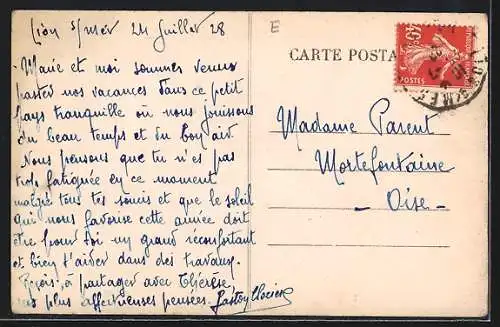 Lion s/mer 24 Juillet 28
Marie et moi sommes venus
passer nos vacances dans ce petit
pays tranquille où nous jouissons
du beau temps et du bon air.
Nous pensons que tu n'es pas
trop fatiguée en ce moment
malgré tous tes soucis et que le soleil
qui nous favorise cette année doit
être pour toi un grand réconfortant
et bien t'aider dans tes travaux.
Reçois, à partager avec Thérèse,
nos plus affectueuses pensées. Gaston
E
CARTE POSTA
POSTES
Madame Parent
Mortefontaine
- Oise -